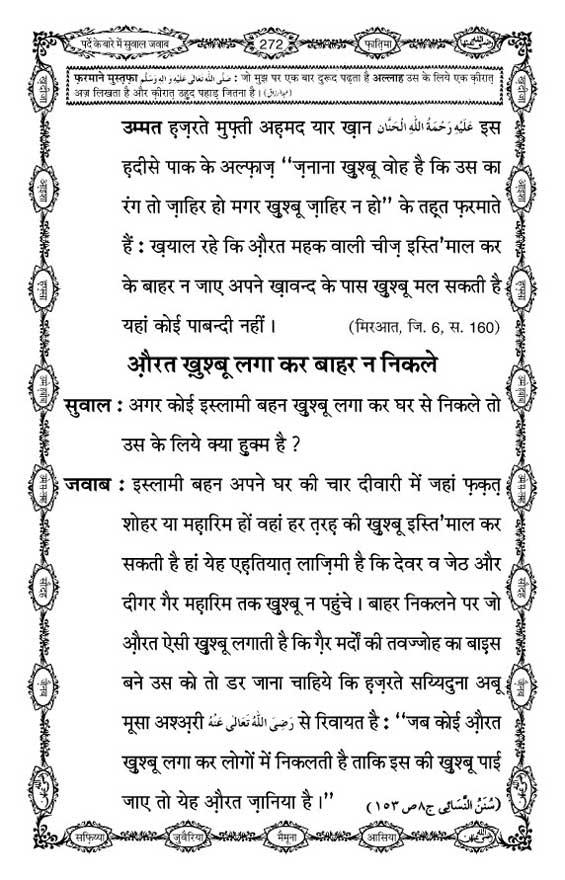 पर्दे के बारे में सुवाल जवाब
272
फ़ातिमा
फ़रमाने मुस्तफ़ा صَلَّى اللهُ تَعَالٰى عَلَيْهِ وَاٰلِهٖ وَسَلَّم : जो मुझ पर एक बार दुरूद पढ़ता है अल्लाह उस के लिये एक क़ीरात़
अज्र लिखता है और क़ीरात़ उहुद पहाड़ जितना है ।
उम्मत हज़रते मुफ़्ती अहमद यार ख़ान عَلَيْهِ رَحْمَةُ اللهِ الْحَنَّان इस
हदीसे पाक के अल्फ़ाज़ “ज़नाना खुश्बू वोह है कि उस का
रंग तो ज़ाहिर हो मगर खुश्बू ज़ाहिर न हो” के तह़्त फ़रमाते
हैं : ख़याल रहे कि औ़रत महक वाली चीज़ इस्ति'माल कर
के बाहर न जाए अपने ख़ावन्द के पास खुश्बू मल सकती है
यहां कोई पाबन्दी नहीं ।
(मिरआत, जि. 6, स. 160)
औ़रत ख़ुश्बू लगा कर बाहर न निकले
सुवाल : अगर कोई इस्लामी बहन ख़ुश्बू लगा कर घर से निकले तो
उस के लिये क्या हुक्म है ?
जवाब : इस्लामी बहन अपने घर की चार दीवारी में जहां फ़क़त़
शोहर या महारिम हों वहां हर त़रह़ की ख़ुश्बू इस्ति'माल कर
सकती है हां येह एह़तियात़ लाज़िमी है कि देवर व जेठ और
दीगर गै़र महारिम तक ख़ुश्बू न पहुंचे । बाहर निकलने पर जो
औ़रत ऐसी ख़ुश्बू लगाती है कि गै़र मर्दों की तवज्जोह का बाइ़स
बने उस को तो डर जाना चाहिये कि ह़ज़रते सय्यिदुना अबू
मूसा अश्अ़री رَضِىَ اللهُ تَعَالٰى عَنْهُ से रिवायत है : “जब कोई औ़रत
ख़ुश्बू लगा कर लोगों में निकलती है ताकि इस की ख़ुश्बू पाई
जाए तो येह औ़रत ज़ानिया है ।”
(سُنَنُ النَّسَائِى ج٨ص ١٥٣)
सफ़िय्या
जुवैरिया
मैमूना
आसिया